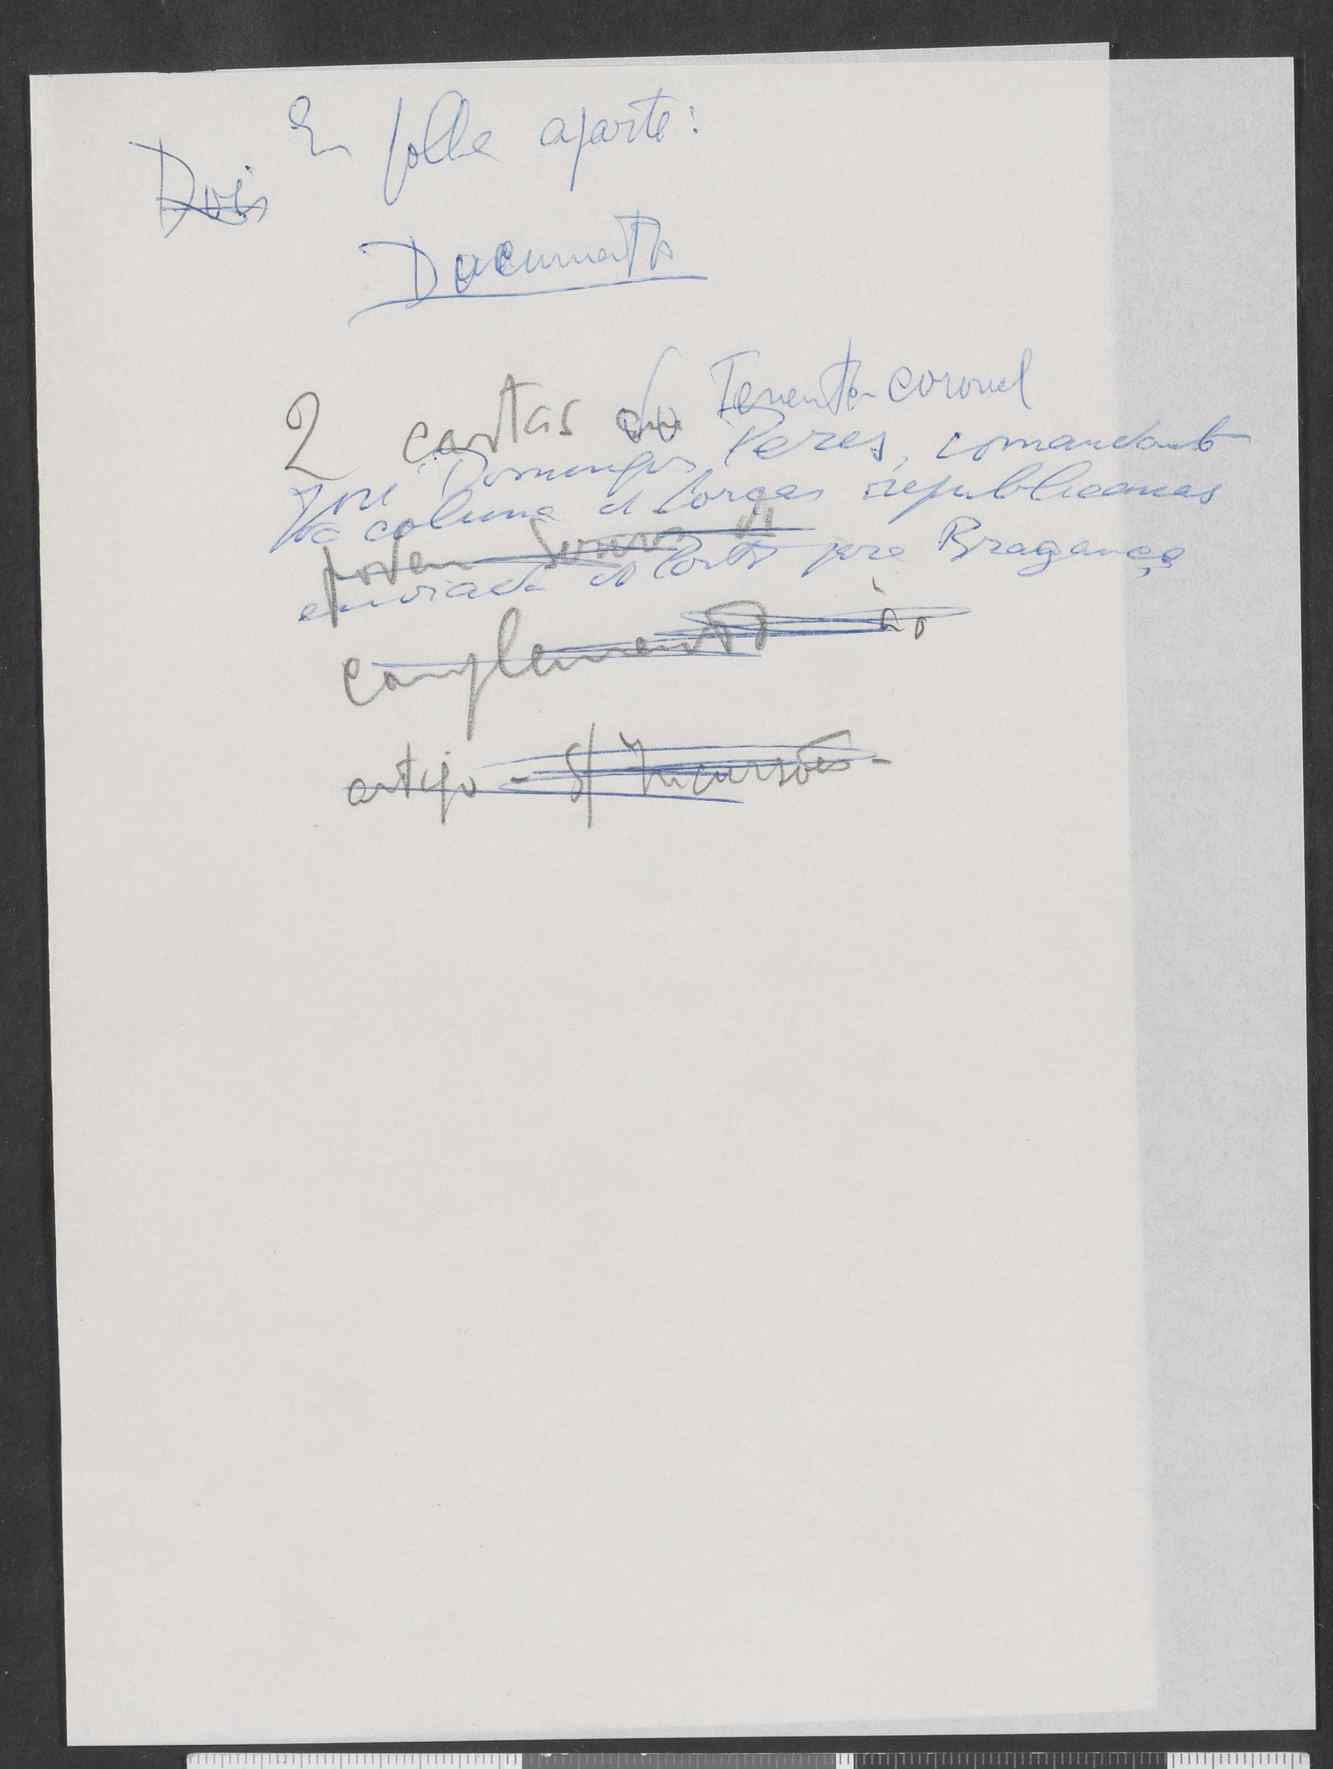 Em folha aparte:
Dois
Documentos
2 cartas do Tenente-coronel
José Domingos Peres, comandante
da coluna de forças republicanas
podem servir de
enviada do Porto para Bragança
complemento ào
artigo - S/ Incursões -